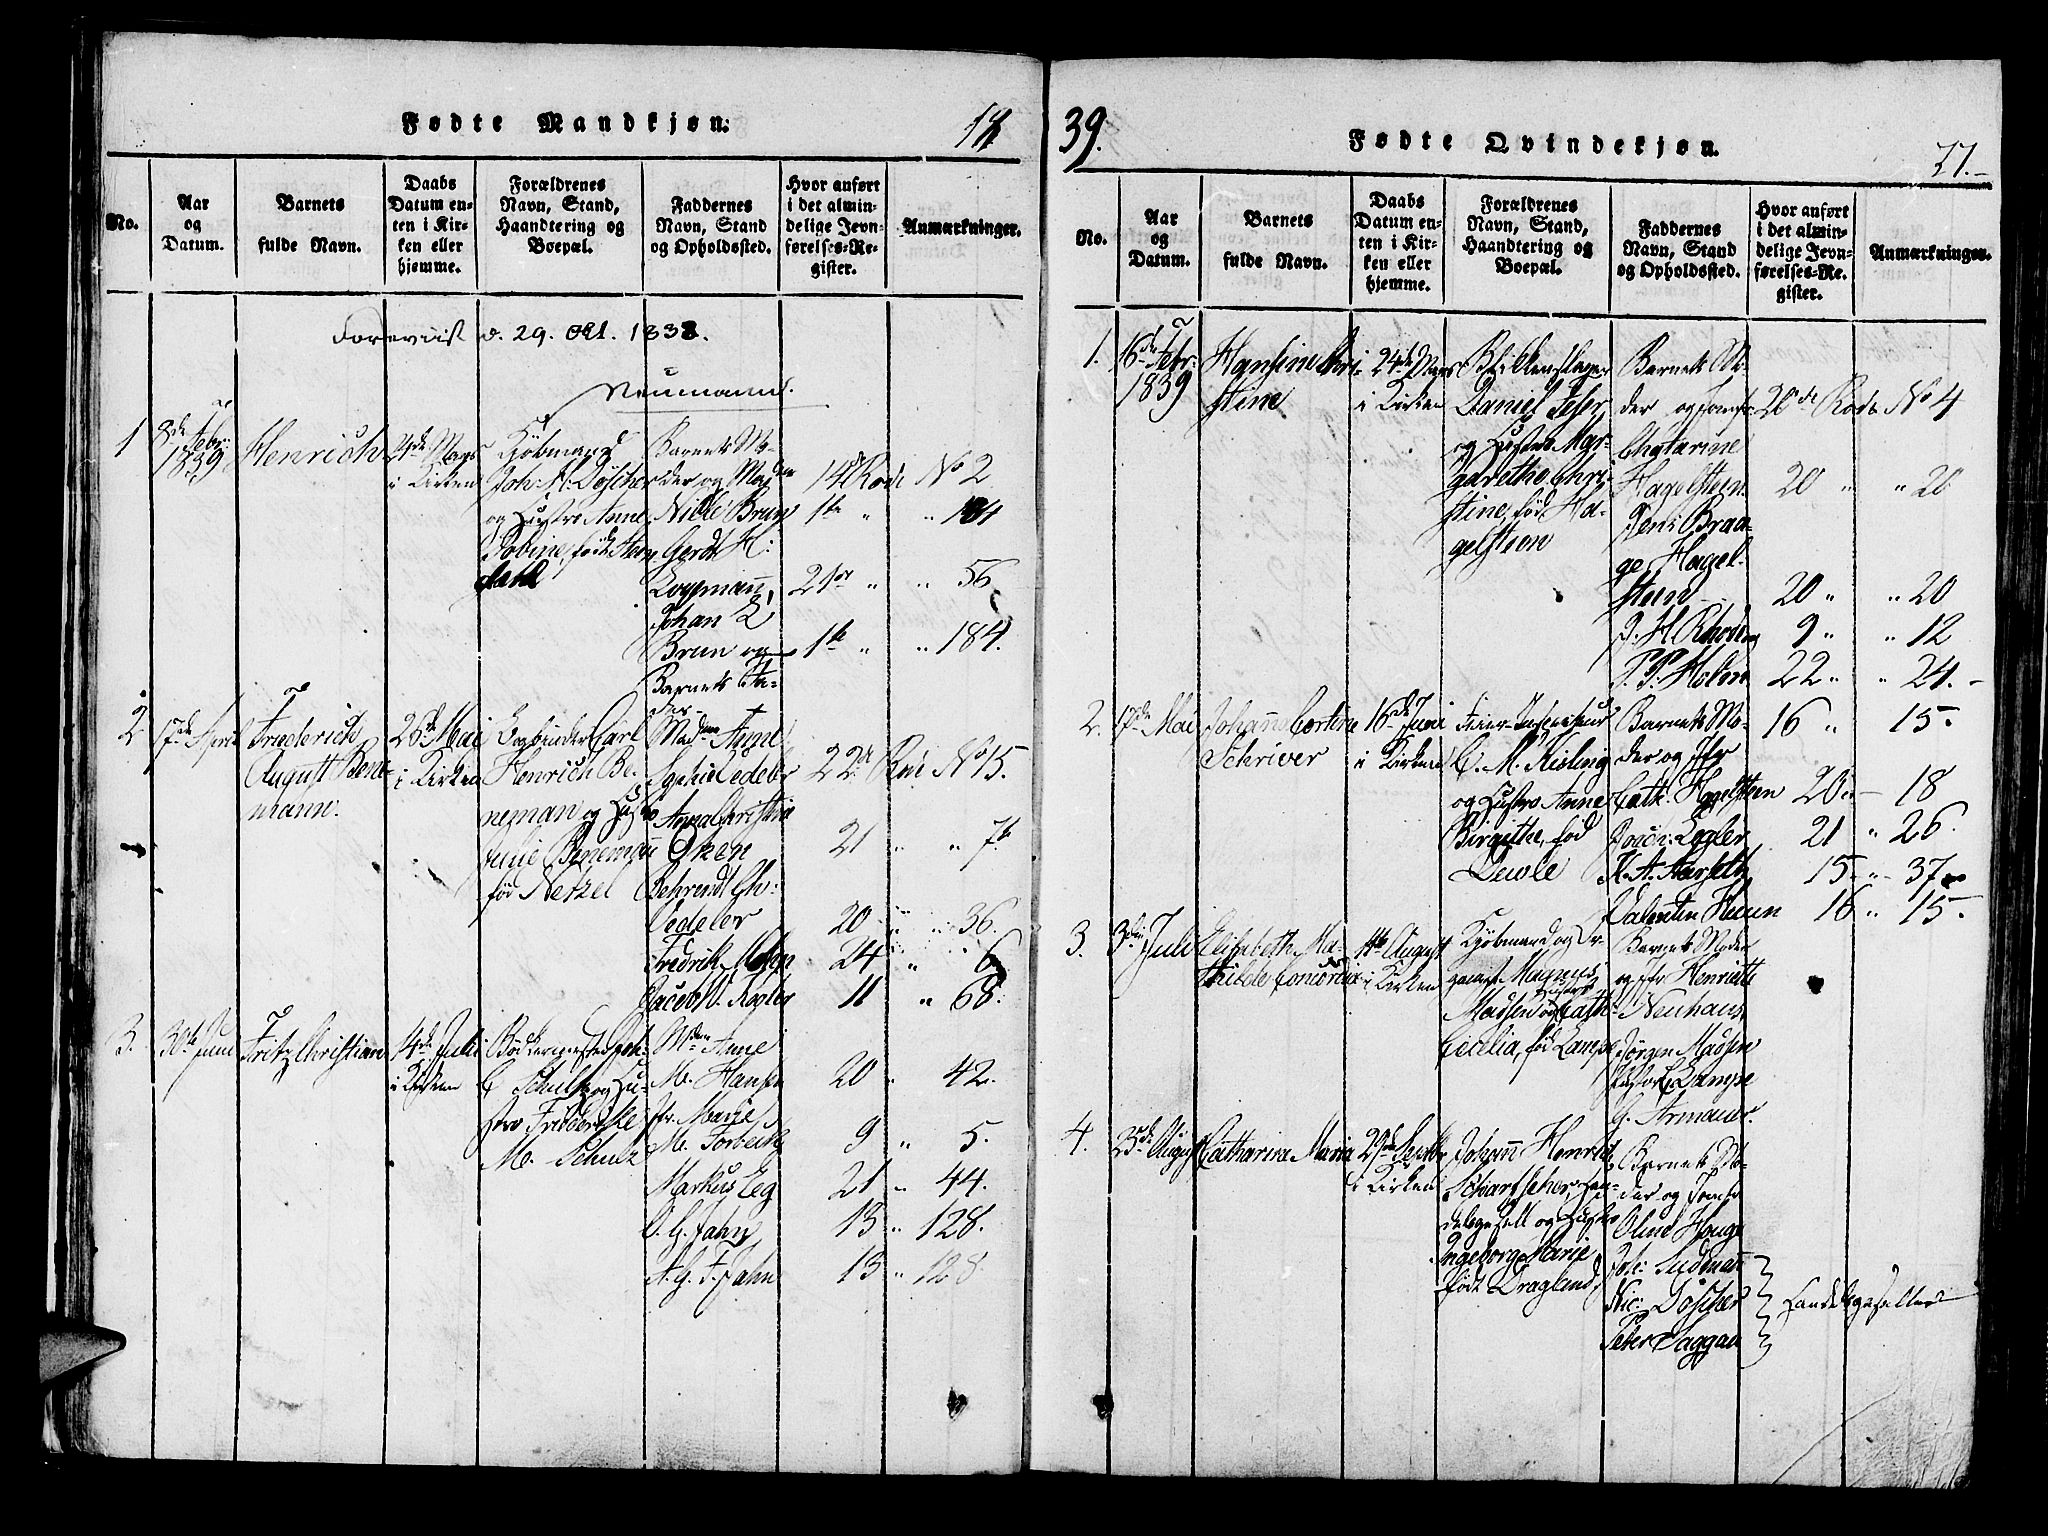 Fødte Mandkjøn. 18
No.
Aar og Datum.
Barnets fulde Navn.
Daabs Datum enten i Kirken eller hjemme.
Forældrenes Navn, Stand, Haandtering og Boepæl.
Faddernes Navn, Stand og Opholdssted.
Hvor anført i det almindelige Jevnførelses-Register.
Anmærkninger.
Foreviist d. 29. Oct. 1838.
Neumann.
1
8de Febr: 1839
Henrich
24de Mars
i Kirken
Kjøbmand
Joh. H: Döscher
og Hustro Anne
Barnets Mo-
der og Madm
Brun
Gerdt H:
Logemann,
Johan
Brun og
Barnets Fa-
der
14de Rode No 2
1te " " 184
21de " " 56
1te " " 184.
2
17de April
Friederich
August Bene-
mann.
26de Mai
i Kirken
Bogbinder Carl
Henrich Be-
neman og Hustro
Julie Benemañ
fød Netzel
Madme Anne
Sophie Vedeler
Anna Christine
Behrendt Chr:
Vedeler
Fredrik Mohn
Jacob V. Kogler
22de Rode No 15.
21 " " 76
20 " " 36.
24 " " 6
11 " 68.
3.
30te Juni
Fritz Christian
14de Juli
i Kirken
Bödkermester Joh:
C Schultz og Hu-
stro
M. Schulz
Mdme Anne
M. Hansen
Jfr. Marie
M.
Markus Eeg
A. G. F. Jahn
20 " 42.
9 " 5.
21 " 44.
13 " 128.
13 " 128.
39. Fødte Qvindekjøn. 77.
No.
Aar og Datum.
Barnets fulde Navn.
Daabs Datum enten i Kirken eller hjemme.
Forældrenes Navn, Stand, Haandtering og Boepæl.
Faddernes Navn, Stand og Opholdssted.
Hvor anført i det almindelige Jevnførelses-Register.
Anmærkninger.
1.
16de Febr: 1839
Hansine Chri-
stine
24de Mars
i Kirken
Blikkenslager
Daniel
og Hustro Mar-
garethe Chri-
stine, fød Ha-
gelsteen
Barnets Mo-
der og Jomfr
Chatarine
Hagelsteen
Jens Braa-
ge Hagel-
steen
P. P. Holm
20de Rode No 4
20 " " 20
20 " " 20
9 " " 12
22 " " 24.
2.
17de Mai
Schriver
16de Juni
i Kirken
C. M. Kisling
og Hustro Anne
Birgithe, fød
Barnets Mo-
der og Jfr
Cath. Hagelsteen
Valentin
16 " 15.
20 " 18
21 " 26.
15 " 37
16 " 15.
3.
3die Juli
Elisabeth Ma-
thilde Concordia
i Kirken
Kjøbmand og Or-
ganist Magnus
Madsen og Hustro Cath:
Cecilia, fød Lampe
Barnets Moder
og Jfr Henriette
Neuhaus
Jørgen Madsen
Lampe
G. Armauer.
4.
August
Catharina Maria
29de Septbr
i Kirken
Johañ Henrich
Scharffscher, Han-
delsgesell og Hustro
Ingeborg Marie
født Dragland
Barnets Mo-
der og Jomfr
Oline Houge
Joh: Sudmañ
Nic: Döscher
Peter Saggau
Handelsgeseller